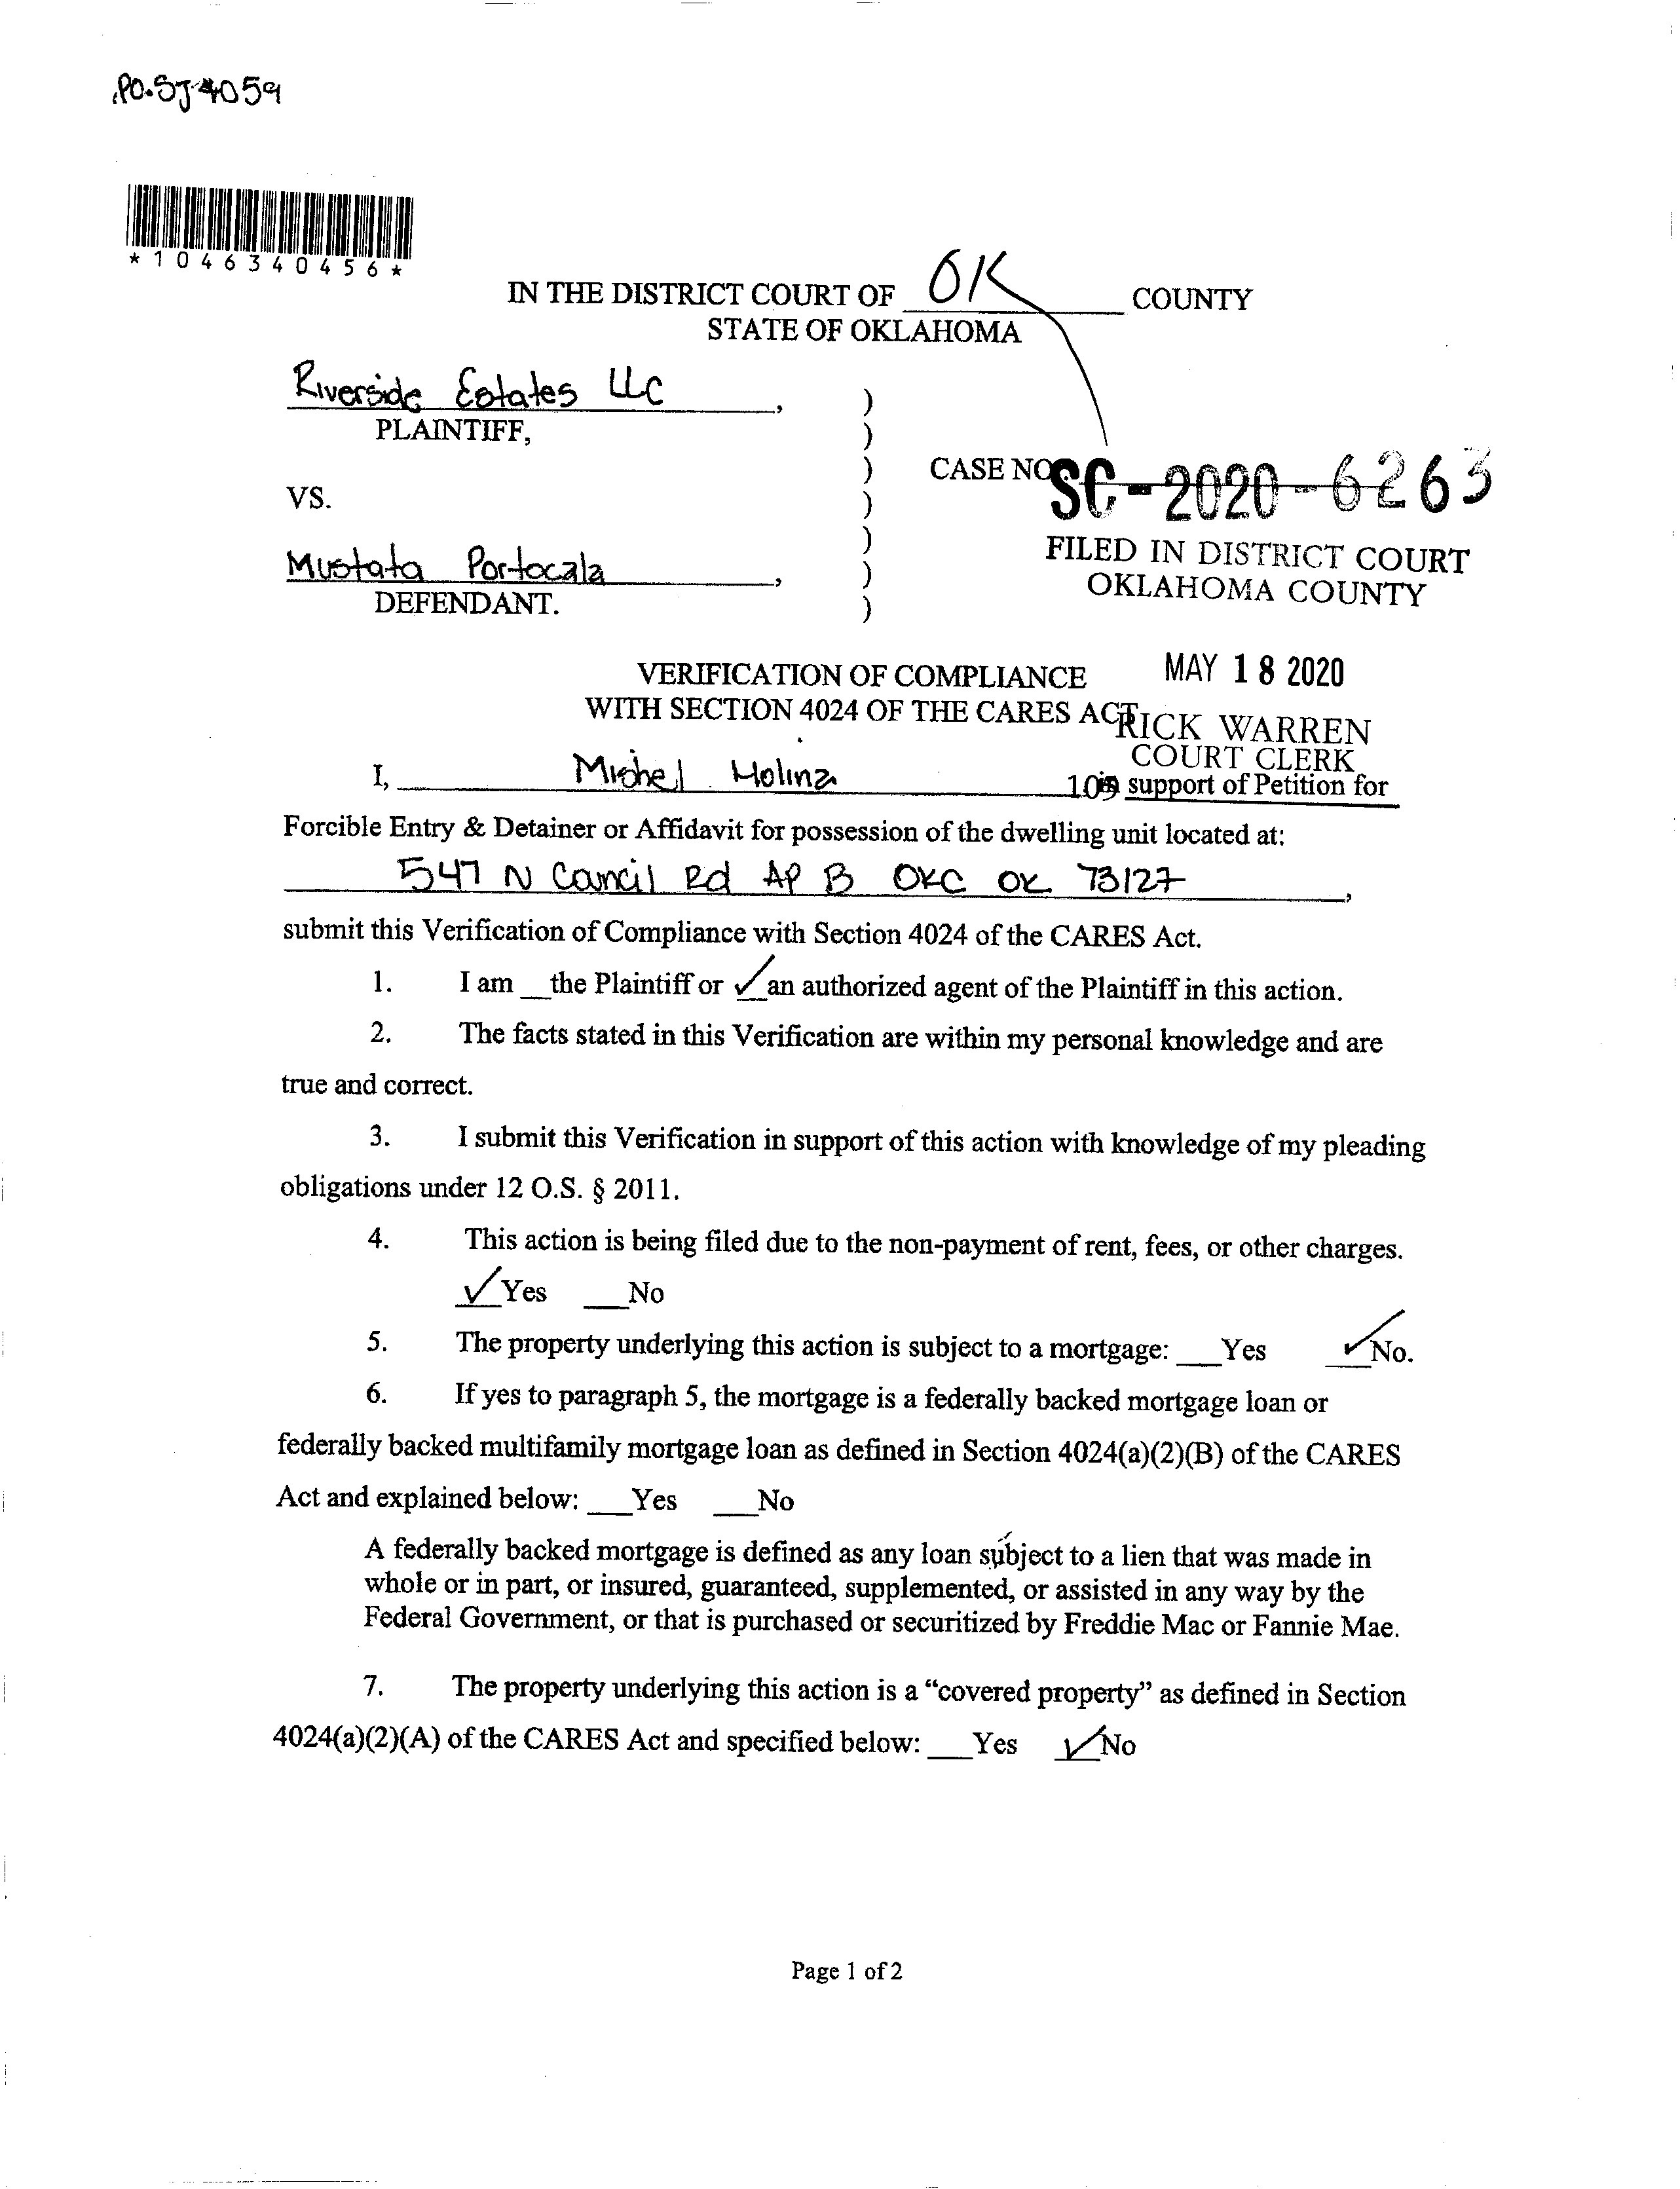 PO.SJ4059
*1046340456*
IN THE DISTRICT COURT OF OK COUNTY
STATE OF OKLAHOMA
Riverside Estates LLC, )
PLAINTIFF, )
) CASE NO. SC-2020-6263
VS. )
) FILED IN DISTRICT COURT
Mustata Portocala, ) OKLAHOMA COUNTY
DEFENDANT. )
VERIFICATION OF COMPLIANCE MAY 18 2020
WITH SECTION 4024 OF THE CARES ACT
RICK WARREN
COURT CLERK
I, Michel Molina 10 in support of Petition for
Forcible Entry & Detainer or Affidavit for possession of the dwelling unit located at:
547 N Concil Rd AP B OKC OK 73127,
submit this Verification of Compliance with Section 4024 of the CARES Act.
1. I am __the Plaintiff or ✓an authorized agent of the Plaintiff in this action.
2. The facts stated in this Verification are within my personal knowledge and are
true and correct.
3. I submit this Verification in support of this action with knowledge of my pleading
obligations under 12 O.S. § 2011.
4. This action is being filed due to the non-payment of rent, fees, or other charges.
✓Yes ___No
5. The property underlying this action is subject to a mortgage: ___Yes ✓No.
6. If yes to paragraph 5, the mortgage is a federally backed mortgage loan or
federally backed multifamily mortgage loan as defined in Section 4024(a)(2)(B) of the CARES
Act and explained below: ___Yes ___No
A federally backed mortgage is defined as any loan subject to a lien that was made in
whole or in part, or insured, guaranteed, supplemented, or assisted in any way by the
Federal Government, or that is purchased or securitized by Freddie Mac or Fannie Mae.
7. The property underlying this action is a “covered property” as defined in Section
4024(a)(2)(A) of the CARES Act and specified below: ___Yes ✓No
Page 1 of 2